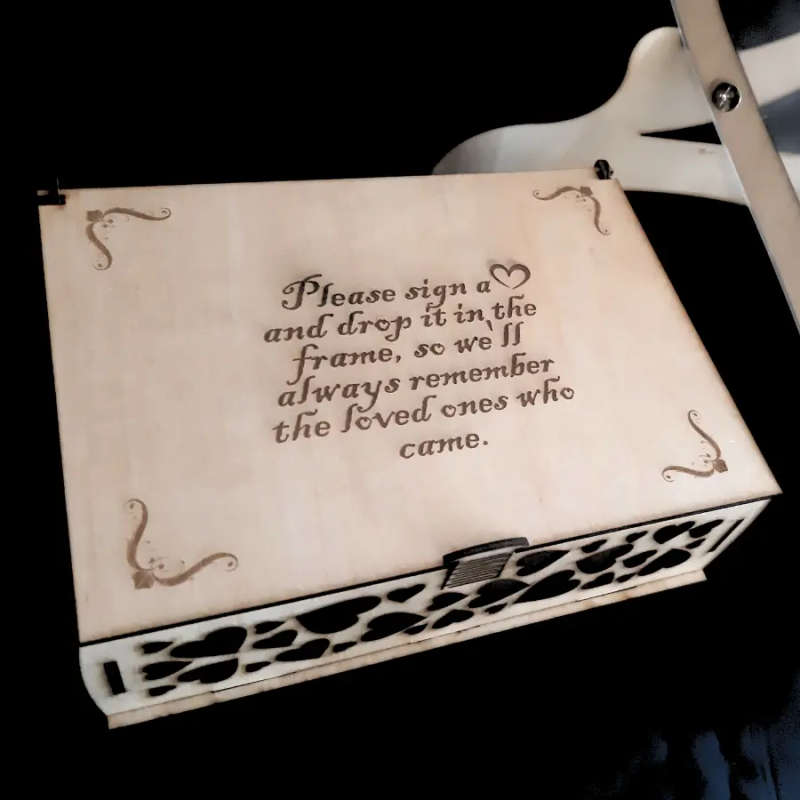 Please sign a ♡
and drop it in the
frame, so we'll
always remember
the loved ones who
came.